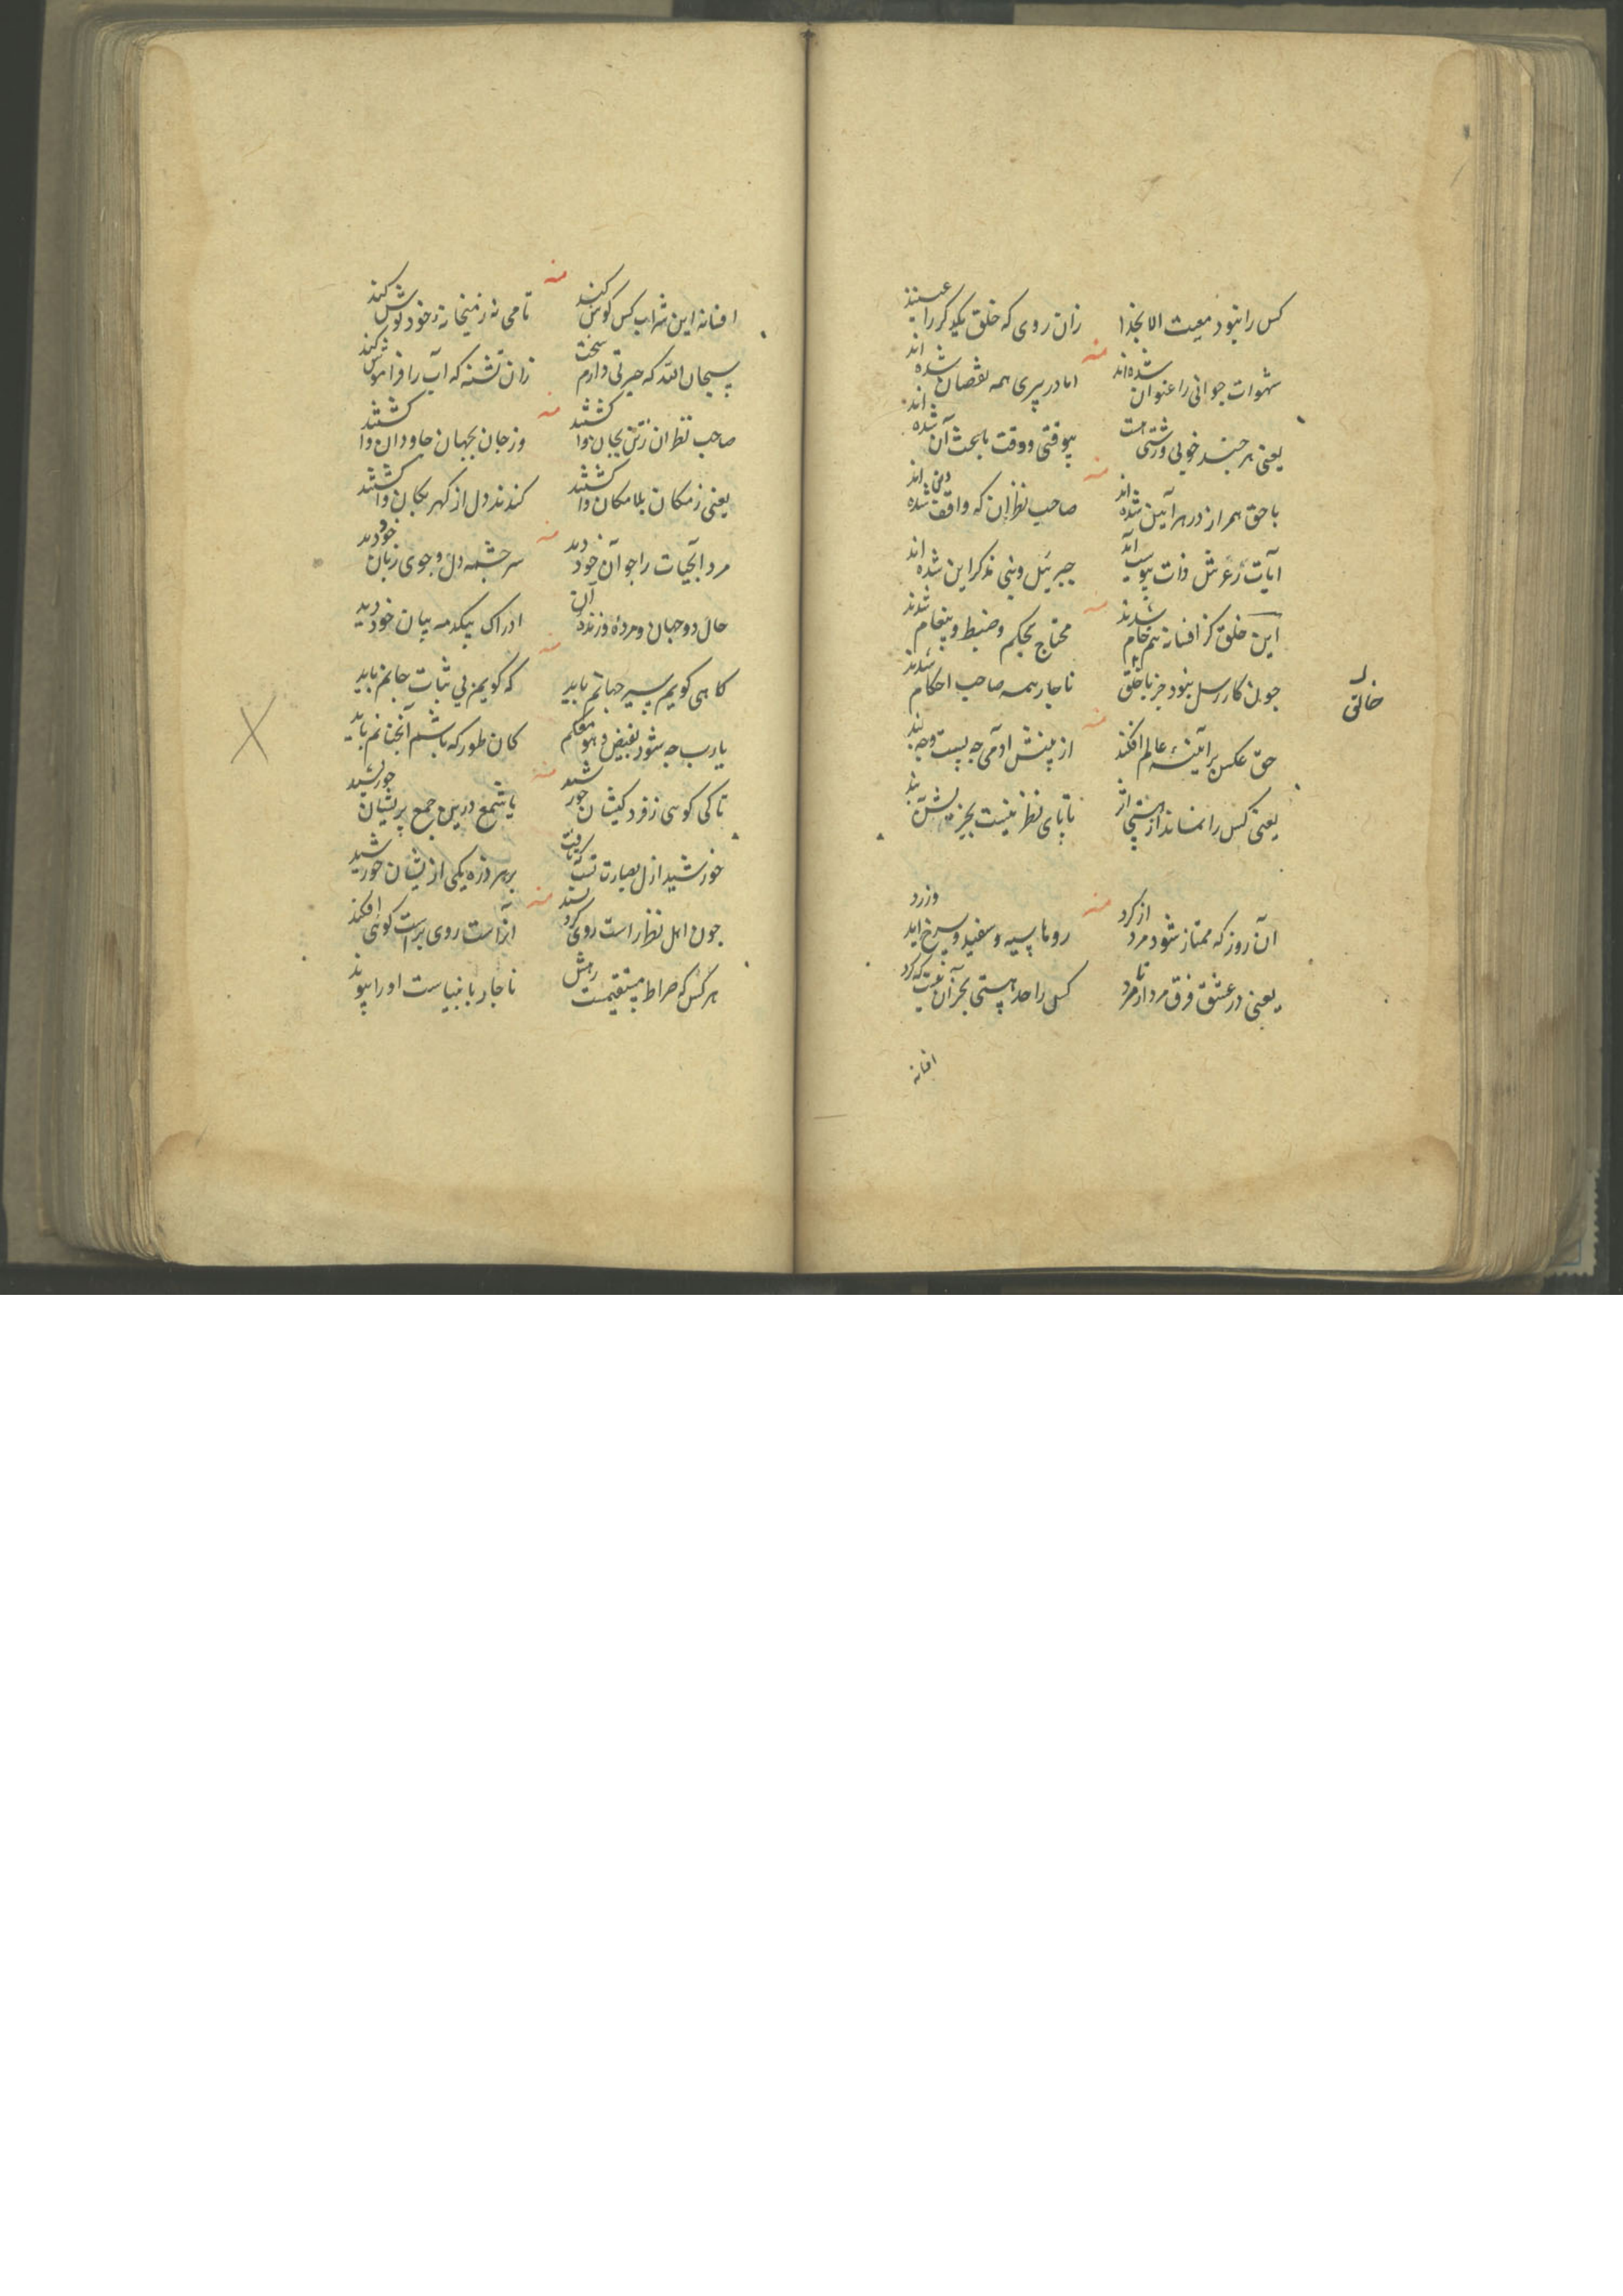 کس را نبود معیت الا بخدا زان روی که خلق یکدگر را عینند
منه
شهوات جوانی را عنوان شده‌اند اما در پیری همه نقصان شده اند
یعنی هر چند خوبی و زشتی هست بیوقتی و وقت باعث آن شده اند
منه
با حق همراز در هر آیین شده اند صاحب نظران که واقف دین شده اند
آیات ز عرش ذات پیوست آید جبرئیل و نبی مذکر این شده اند
منه
این خلق کز افسانه هم خام شدند محتاج بحکم و ضبط و پیغام شدند
چون کار رسل نبود جز با خلق ناچار همه صاحب احکام شدند
خالق
منه
حق عکس بر آئینه عالم افکند از بینش آدمی چه پست و چه بلند
یعنی کس را نماند از هستی تا پای نظر نیست بجز
منه
آن روز که ممتاز شود مرد از گرد روها سیه و سفید و سرخ آید و زرد
یعنی در عشق فرق مرد از نامرد کس را حد هستی بجز آن نیست که کرد
افسانه
منه
افسانه این شراب کس گوش کند تا می نه ز میخانه خود نوش کند
سبحان الله که حیرتی دارم سخت زان تشنه که آب را فراموش کند
منه
صاحب نظران ز تن بجان وا گشتند وز جان بجهان جاودان وا گشتند
یعنی ز مکان بلامکان وا گشتند کندند دل از گهر بکان وا گشتند
منه
مرد آبحیات را چو آن خود دید سرچشمه دل و جوی زبان خود دید
حال دو جهان و مرده و زنده آن ادراک بیکدمه بیان خود دید
منه
گاهی گویم سیر جهانم باید که گویم نی ثبات جانم باید
یارب چه شود بفیض و هو معکم کان طور که باشم آنچنانم باید
منه
تا کی گوئی ز فرد کیشان خورشید یا شمع درین جمع پریشان خورشید
خورشید ازل بصارت تست بر هر ذره یکی ازیشان خورشید
منه
چون اهل نظر راست روی کرد پسند ایزاست روی براست گوئی افکند
هر کس که صراط مستقیمست رهش ناچار با نبیاست او را پیوند